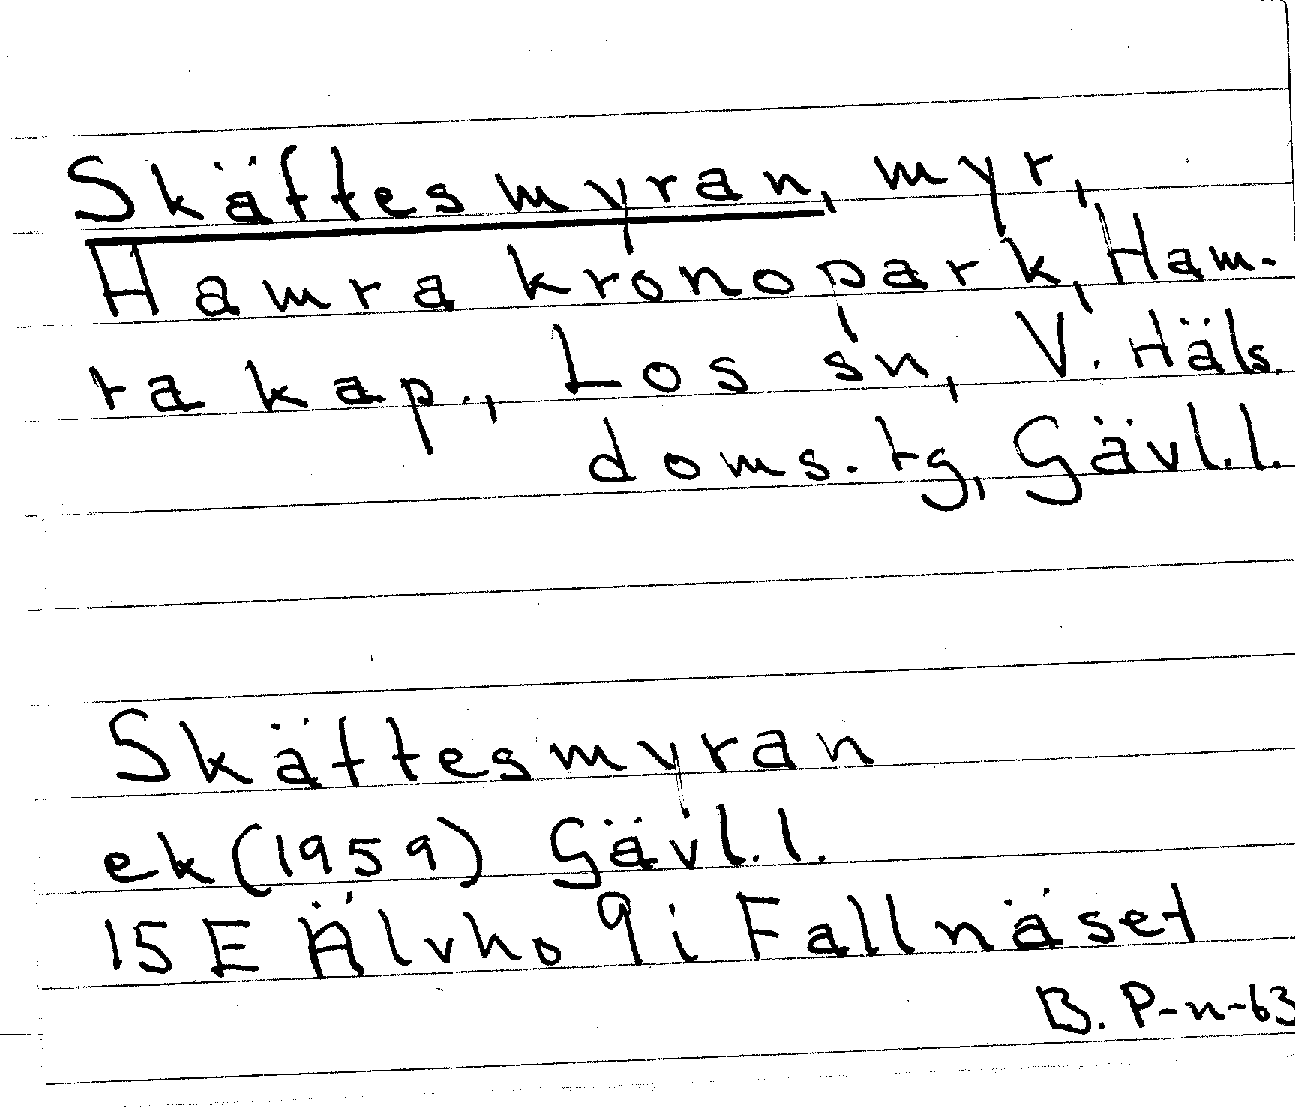 Skäftesmyran, myr,
Hamra kronopark, Ham-
ra kap., Los sn, V. Häls.
doms. tg, Gävl.l.
Skäftesmyran
ek (1959) Gävl.l.
15 E Älvho 9 i Fallnäset
B. P-n-63